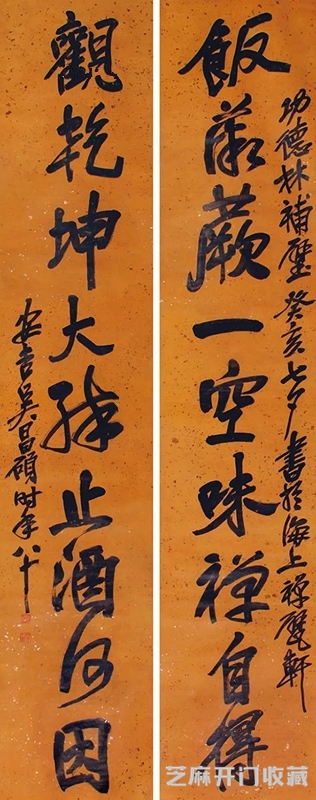 功德林補壁癸亥七夕書於海上禪甓軒
飯蕨一空味禪自得
觀乾坤大止酒何因
安吉吳昌碩時年八十
芝麻开门收藏